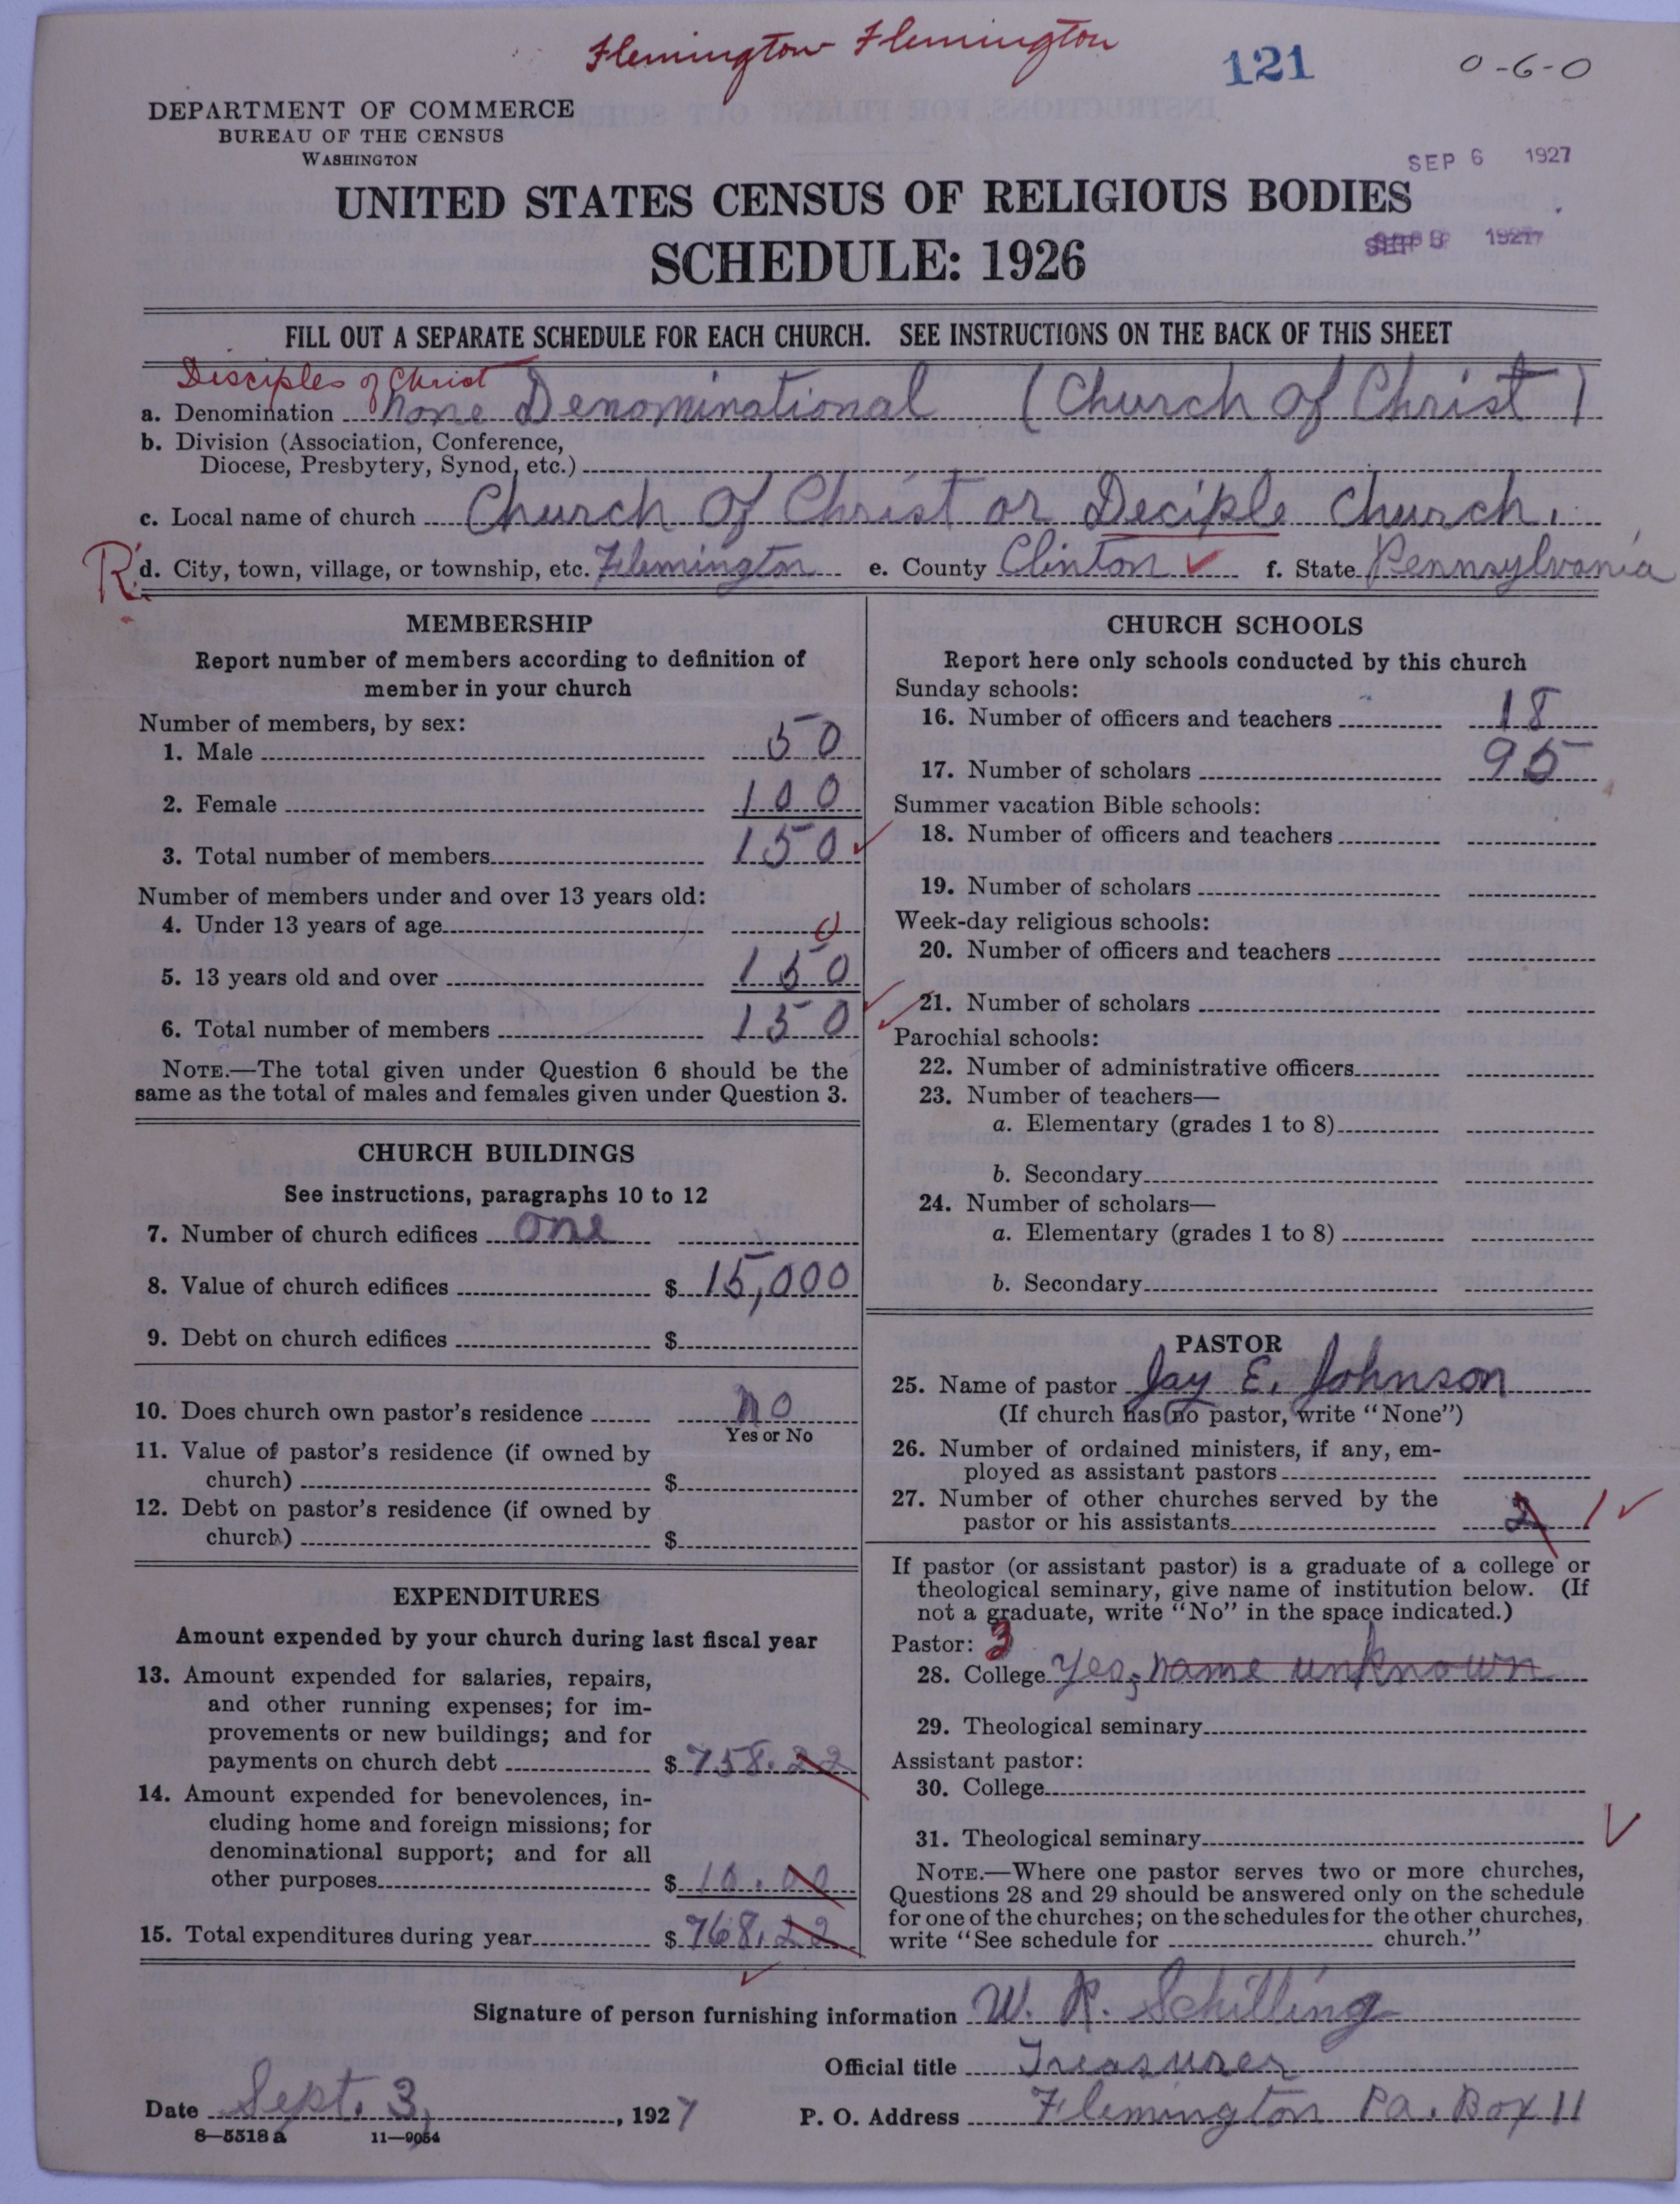 Flemington Flemington
121
0-6-0
DEPARTMENT OF COMMERCE
BUREAU OF THE CENSUS
WASHINGTON
SEP 6 1927
UNITED STATES CENSUS OF RELIGIOUS BODIES
SCHEDULE: 1926
1927
FILL OUT A SEPARATE SCHEDULE FOR EACH CHURCH. SEE INSTRUCTIONS ON THE BACK OF THIS SHEET
Disciples of Christ
a. Denomination none Denominational (Church of Christ)
b. Division (Association, Conference,
Diocese, Presbytery, Synod, etc.)
c. Local name of church Church Of Christ or Deciple Church.
R d. City, town, village, or township, etc. Flemington e. County Clinton ✓ f. State Pennsylvania
MEMBERSHIP
Report number of members according to definition of
member in your church
Number of members, by sex:
1. Male 50
2. Female 100
3. Total number of members 150 ✓
Number of members under and over 13 years old:
4. Under 13 years of age 0
5. 13 years old and over 150
6. Total number of members 150 ✓
NOTE.—The total given under Question 6 should be the
same as the total of males and females given under Question 3.
CHURCH BUILDINGS
See instructions, paragraphs 10 to 12
7. Number of church edifices one
8. Value of church edifices $ 15,000
9. Debt on church edifices $
10. Does church own pastor's residence no
Yes or No
11. Value of pastor's residence (if owned by
church) $
12. Debt on pastor's residence (if owned by
church) $
EXPENDITURES
Amount expended by your church during last fiscal year
13. Amount expended for salaries, repairs,
and other running expenses; for im-
provements or new buildings; and for
payments on church debt $ 758.22
14. Amount expended for benevolences, in-
cluding home and foreign missions; for
denominational support; and for all
other purposes $ 10.00
15. Total expenditures during year $ 768.22
✓
CHURCH SCHOOLS
Report here only schools conducted by this church
Sunday schools:
16. Number of officers and teachers 18
17. Number of scholars 95
Summer vacation Bible schools:
18. Number of officers and teachers
19. Number of scholars
Week-day religious schools:
20. Number of officers and teachers
✓ 21. Number of scholars
Parochial schools:
22. Number of administrative officers
23. Number of teachers—
a. Elementary (grades 1 to 8)
b. Secondary
24. Number of scholars—
a. Elementary (grades 1 to 8)
b. Secondary
PASTOR
25. Name of pastor Jay E. Johnson
(If church has no pastor, write "None")
26. Number of ordained ministers, if any, em-
ployed as assistant pastors
27. Number of other churches served by the
pastor or his assistants 2 1 ✓
If pastor (or assistant pastor) is a graduate of a college or
theological seminary, give name of institution below. (If
not a graduate, write "No" in the space indicated.)
Pastor: 3
28. College Yes, name unknown
29. Theological seminary
Assistant pastor:
30. College
31. Theological seminary ✓
NOTE.—Where one pastor serves two or more churches,
Questions 28 and 29 should be answered only on the schedule
for one of the churches; on the schedules for the other churches,
write "See schedule for church."
Signature of person furnishing information W. R. Schilling
Official title Treasurer
Date Sept. 3, 1927 P. O. Address Flemington Pa. Box 11
8—5518 a 11—9054